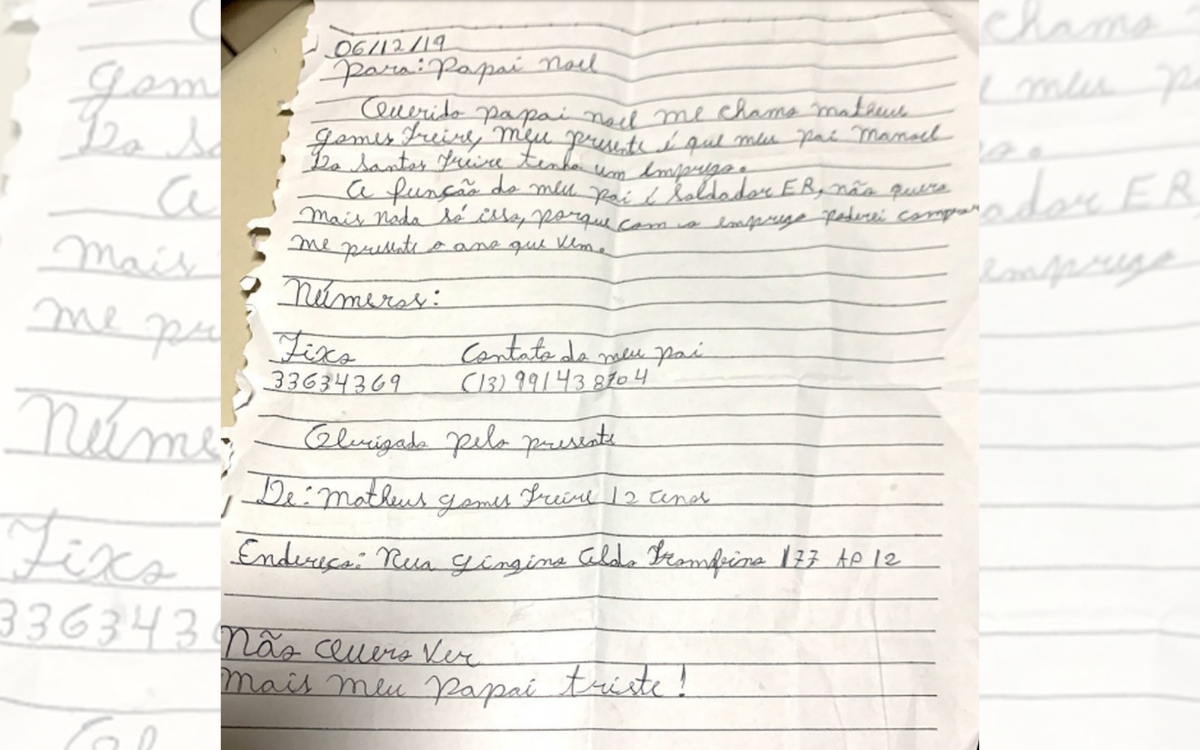 06/12/19
Para: Papai noel
Querido papai noel me chamo matheus
gomes Freire, Meu presente é que meu pai Manoel
Do Santos Freire tenha um emprego.
A função do meu pai é Soldador ER, não quero
mais nada só isso, porque com o emprego poderei comprar
me presente o ano que vem.
Números:
Fixo Contato do meu pai
33634369 (13) 991438704
Obrigado pelo presente
De: Matheus gomes Freire 12 anos
Endereço: Rua 177 AP 12
Não Quero Ver
mais meu papai triste!